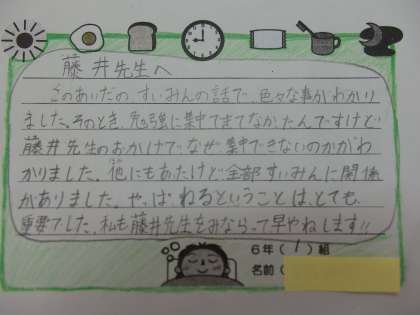 藤井先生へ
このあいだの、すいみんの話で、色々な事がわかり
ました。そのとき、勉強に集中できてなかたんですけど
藤井先生のおかげで、なぜ、集中できないのかがわ
かりました。他にもあたけど全部すいみんに関係
がありました。やっぱねるということは、とても、
重要でした。私も藤井先生をみならって早やねします!!
6年(1)組
名前(